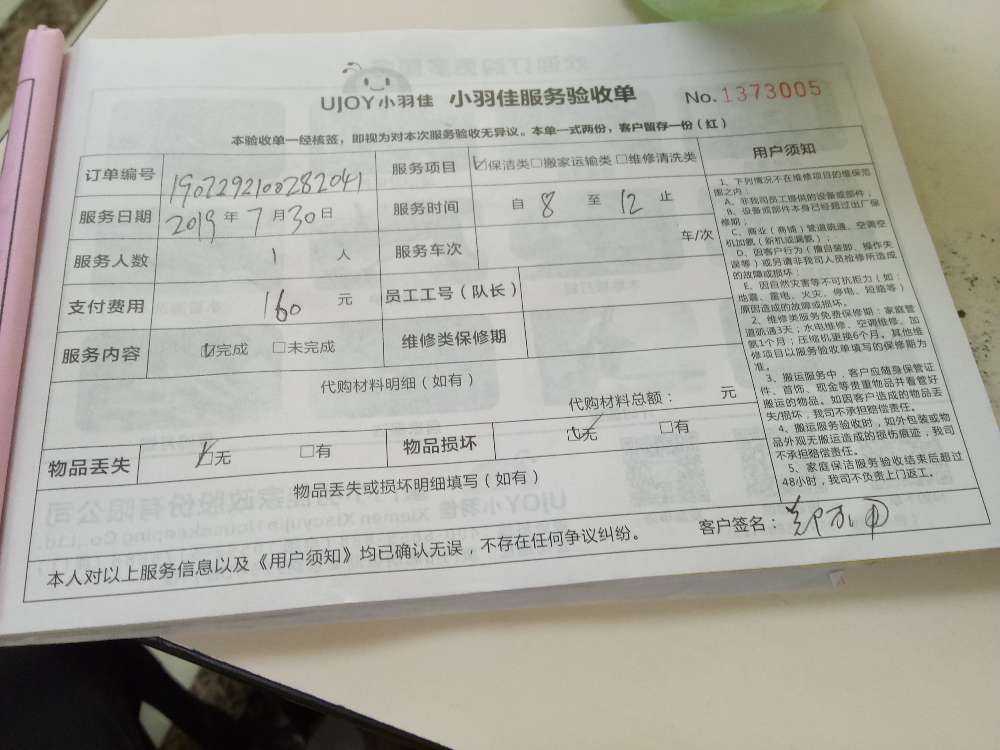 UJOY小羽佳 小羽佳服务验收单 No.1373005
本验收单一经核签，即视为对本次服务验收无异议。本单一式两份，客户留存一份（红）
订单编号 1902292100282041 服务项目 ☑保洁类□搬家运输类□维修清洗类
服务日期 2019年7月30日 服务时间 自 8 至 12 止
服务人数 1 人 服务车次 车/次
支付费用 160 元 员工工号（队长）
服务内容 ☑完成 □未完成 维修类保修期
代购材料明细（如有）
代购材料总额： 元
物品丢失 ☑无 □有 物品损坏 ☑无 □有
物品丢失或损坏明细填写（如有）
本人对以上服务信息以及《用户须知》均已确认无误，不存在任何争议纠纷。
客户签名：
用户须知
1、下列情况不在维修项目的维保范
围之内：
A、非我司员工提供的设备或部件；
B、设备或部件本身已经超过出厂保
修期；
C、商业（商铺）管道疏通、空调空
机加氨（新机或漏氨）；
D、因客户行为（擅自装卸、操作失
误等）或另请非我司人员检修所造成
的故障或损坏；
E、因自然灾害等不可抗拒力（如：
地震、雷电、火灾、停电、短路等）
原因造成的故障或损坏。
2、维修类服务免费保修期：家庭管
道疏通3天；水电维修、空调维修、加
氨1个月；压缩机更换6个月。其他维
修项目以服务验收单填写的保修期为
准。
3、搬运服务中，客户应随身保管证
件、首饰、现金等贵重物品并看管好
搬运的物品。如因客户造成的物品丢
失/损坏，我司不承担赔偿责任。
4、搬运服务验收时，如外包装或物
品外观无搬运造成的损伤痕迹，我司
不承担赔偿责任。
5、家庭保洁服务验收结束后超过
48小时，我司不负责上门返工。